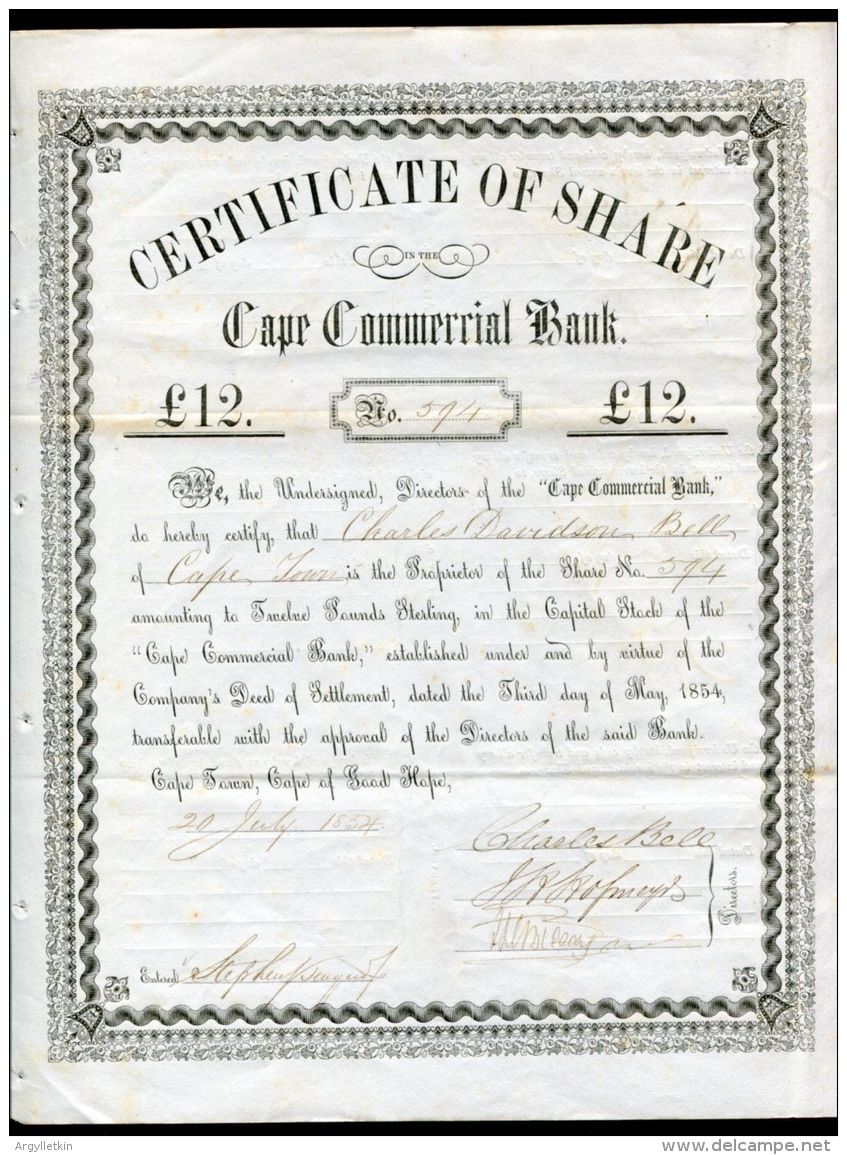 CERTIFICATE OF SHARE
IN THE
Cape Commercial Bank.
£12. No. 594 £12.
We, the Undersigned, Directors of the "Cape Commercial Bank,"
do hereby certify, that Charles Davidson Bell
of Cape Town is the Proprietor of the Share No. 594
amounting to Twelve Pounds Sterling, in the Capital Stock of the
"Cape Commercial Bank," established under and by virtue of the
Company's Deed of Settlement, dated the Third day of May, 1854,
transferable with the approval of the Directors of the said Bank.
Cape Town, Cape of Good Hope,
20 July 1854.
Charles Bell
Hofmeyr
Directors.
Entered Stephen
Argylletkin
delcampe.net